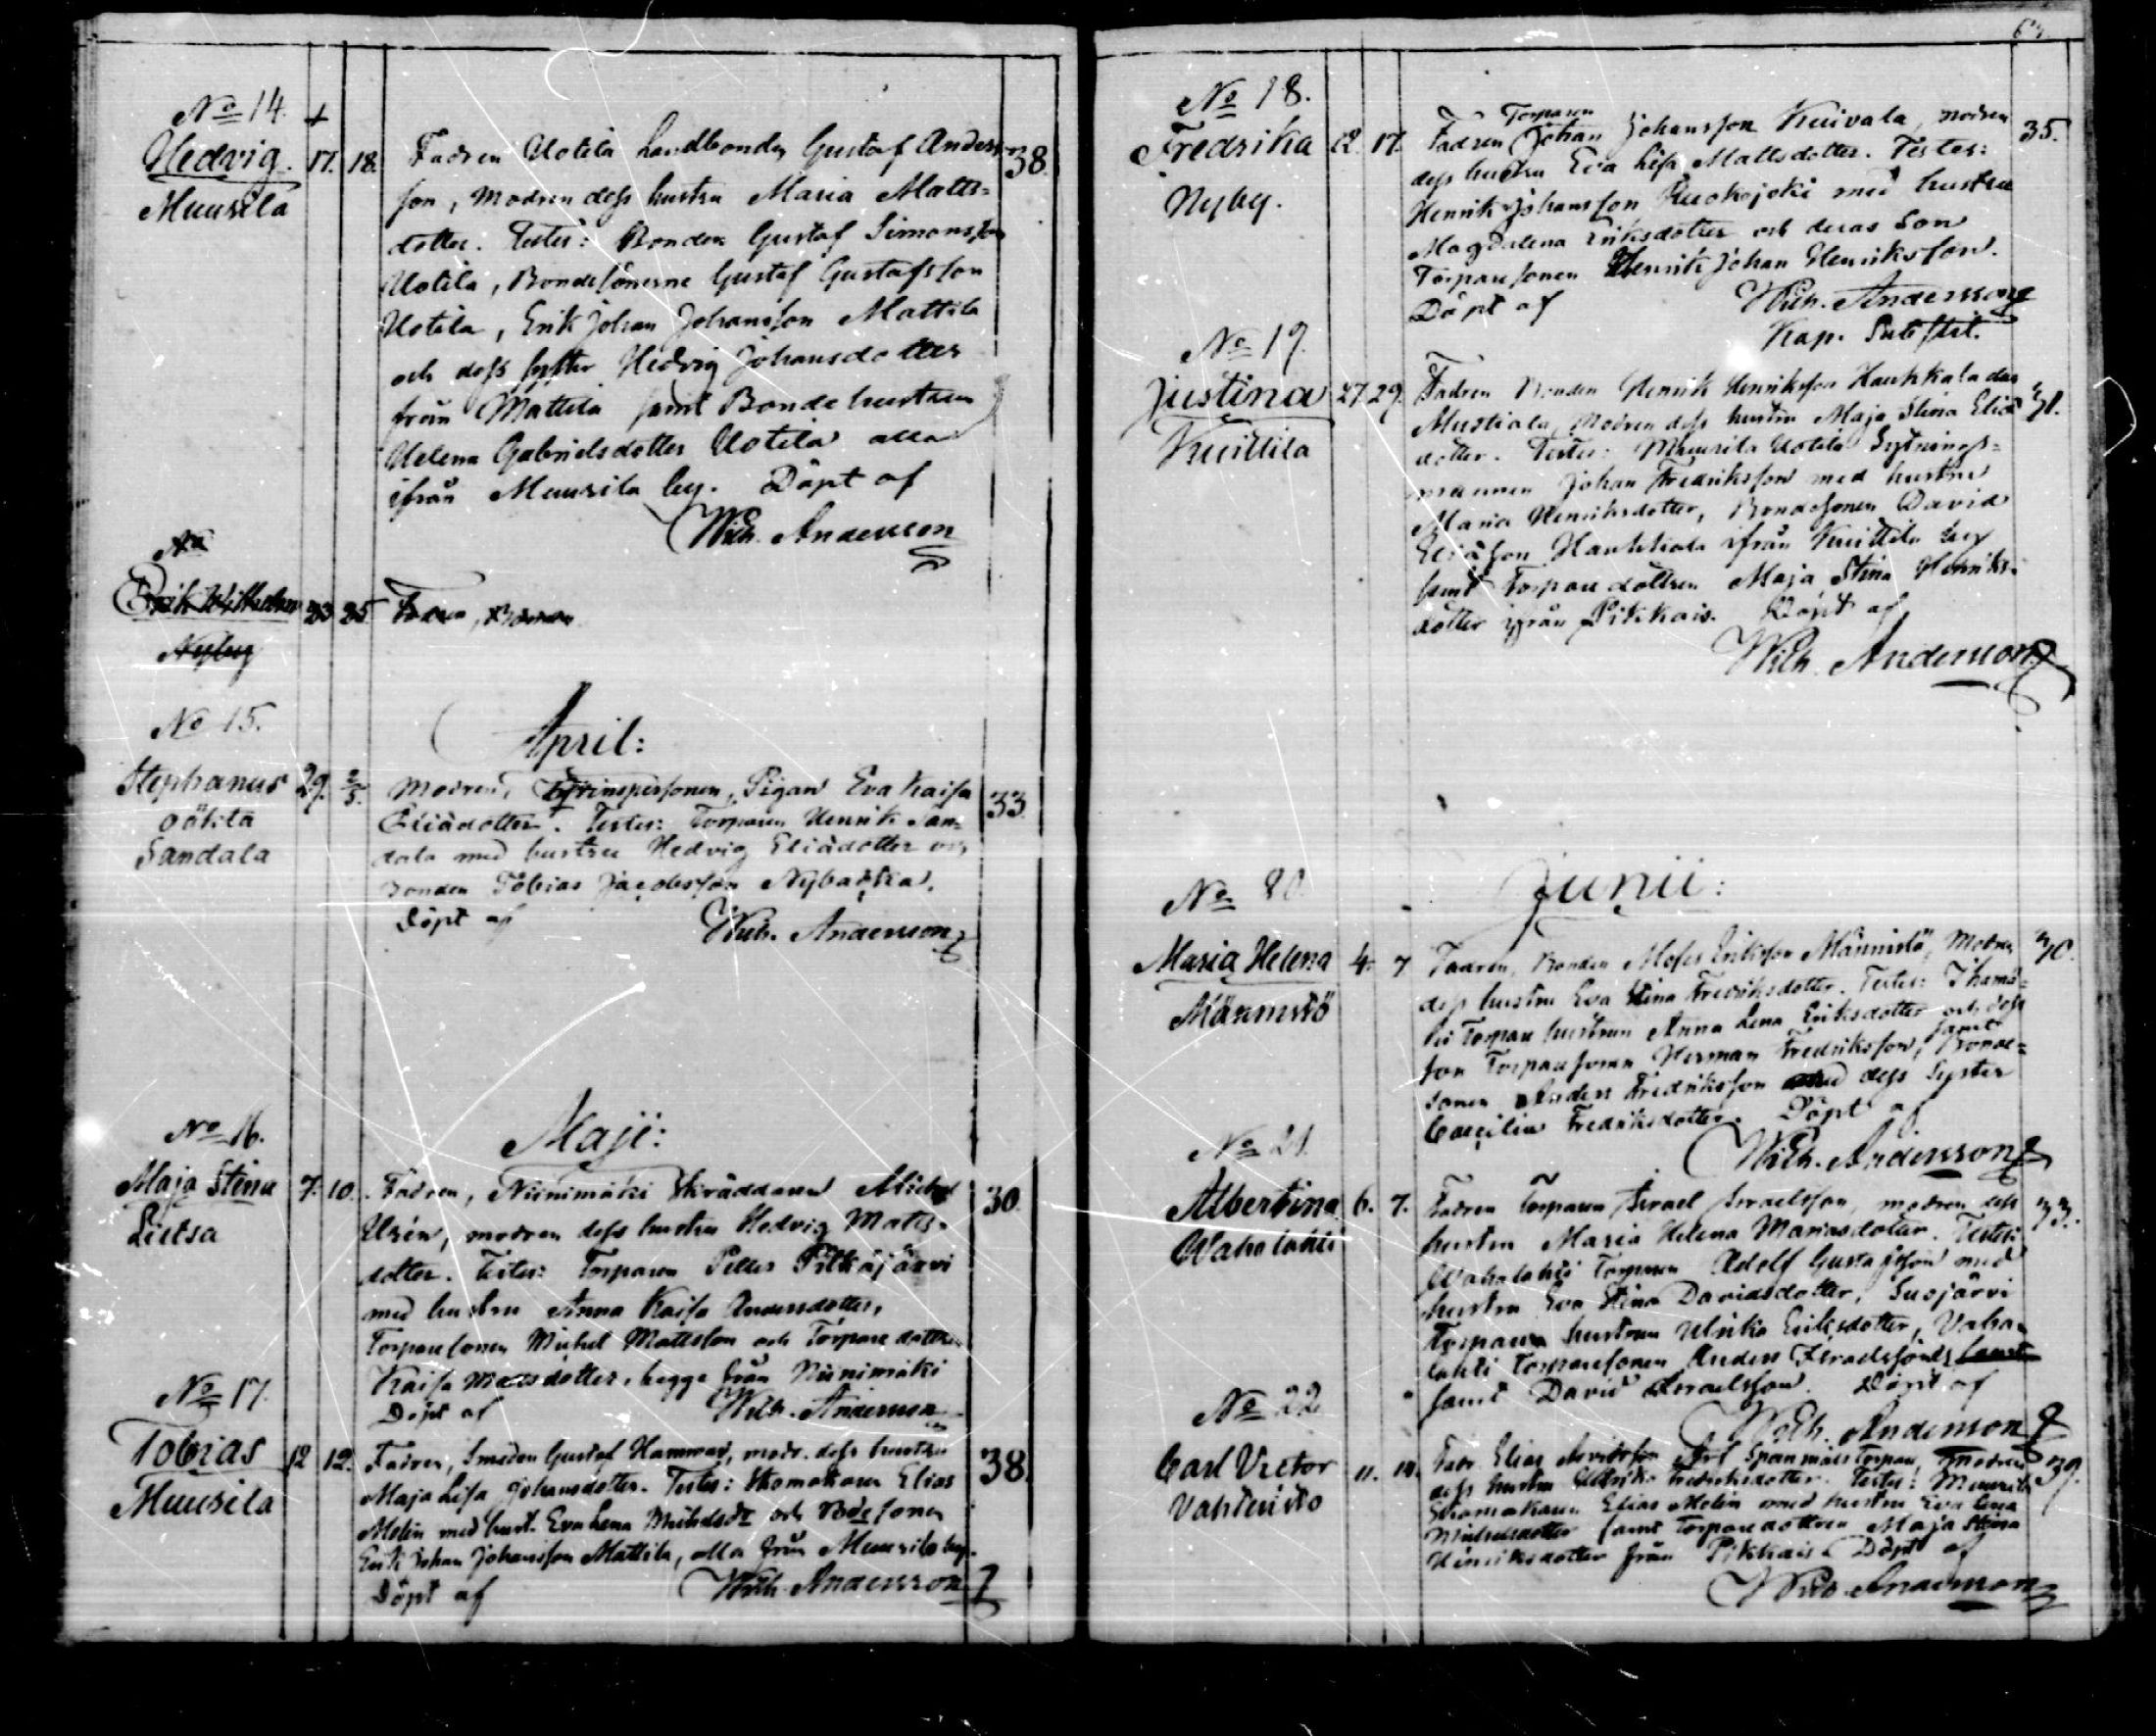 No 14. +
Hedvig. 17. 18.
Muurila
Fadren Uotila Landbonden Gustaf Anders- 38.
son, Modren dess hustru Maria Matts-
dotter. Testes: Bonden Gustaf Simonsson
Uotila, Bondesönerne Gustaf Gustafsson
Uotila, Erik Johan Johansson Mattila
och dess syster Hedvig Johansdotter
från Mattila samt Bondehustrun
Helena Gabrielsdotter Uotila alla
ifrån Muurila by. Döpt af
Wilh. Andersson
No
Erik Wilhelm 23 25 Fadren, Bonden
Nyby
April:
No 15.
Stephanus 29. 2/5.
oäkta
Sandala
Modren, Pigan Eva Kaisa 33.
Eliædotter. Testes: Torparen Henrik San-
dala med hustru Hedvig Eliædotter och
Bonden Tobias Jacobsson Nybacka.
Döpt af
Wilh. Andersson
Maji:
No 16.
Maja Stina 7. 10.
Lietsa
Fadren, Niinimäki Skräddaren Michel 30.
modren dess hustru Hedvig Matts-
dotter. Testes: Torparen Petter Pitkäjärvi
med hustru Anna Kaisa Andersdotter,
Torparesonen Michel Mattsson och Torpare dottren
Kaisa Mattsdotter, begge från Niinimäki
Döpt af Wilh. Andersson
No 17.
Tobias 12 12.
Muurila
Fadren, Smeden Gustaf Hammar, modr. dess hustru 38.
Maja Lisa Johansdotter. Testes: Skomakaren Elias
Molin med hust. Eva Lena Michelsdr och Bdesonen
Erik Johan Johansson Mattila, alla från Muurila by.
Döpt af Wilh. Andersson
No 18.
Fredrika 12. 17.
Nyby.
Torparen
Fadren Johan Johansson Kuivala, modren 35.
dess hustru Eva Lisa Mattsdotter. Testes:
Henrik Johansson Ruokojoki med hustru
Magdalena Eriksdotter och deras Son
Torparesonen Henrik Johan Henriksson.
Döpt af Wilh. Andersson
Kap. Substit.
No 19.
Justina 27 29.
Kuittila
Fadren Bonden Henrik Henriksson Haukkala
Mustiala, Modren dess hustru Maja Stina Eliæ
dotter. Testes: Muurila Uotila Sytnings-
mannen Johan Fredriksson med hustru
Maria Henriksdotter, Bondesonen David
Eliæson Haukkala ifrån Kuittila by
samt Torpare dottren Maja Stina Henriks-
dotter ifrån Pikkais. Döpt af
Wilh. Andersson
Junii:
No 20.
Maria Helena 4. 7
Männistö
Fadren, Bonden Moses Eriksson Männistö, Modren 40.
dess hustru Eva Stina Fredriksdotter. Testes:
Torpare hustrun Anna Lena Eriksdotter och dess
son Torparesonen Herman Fredriksson, samt Bonde-
sonen Anders Fredriksson dess Syster
Caecilia Fredriksdotter. Döpt af
Wilh. Andersson
No 21.
Albertina 6. 7.
Wahalahti
Fadren Torparen Israel Israelsson, modren dess 33.
hustru Maria Helena Mariasdotter. Testes:
Wahalahti Torparen Adolf Gustafsson med
hustru Eva Stina Davidsdotter, Susjärvi
Torpare hustrun Ulrika Eriksdotter, Vaha-
lahti Torparesonen Anders Israelsson samt
samt David Israelsson. Döpt af
Wilh. Andersson
No 22
Carl Victor 11. 14.
Vahteristo
Fadr. Elias Torpare, modren 39.
dess hustru Ulrika Fredriksdotter. Testes: Muurila
Skomakaren Elias Molin med hustru Eva Lena
Michelsdotter samt Torparedottren Maja Stina
Henriksdotter från Pikkais. Döpt af
Wilh. Andersson